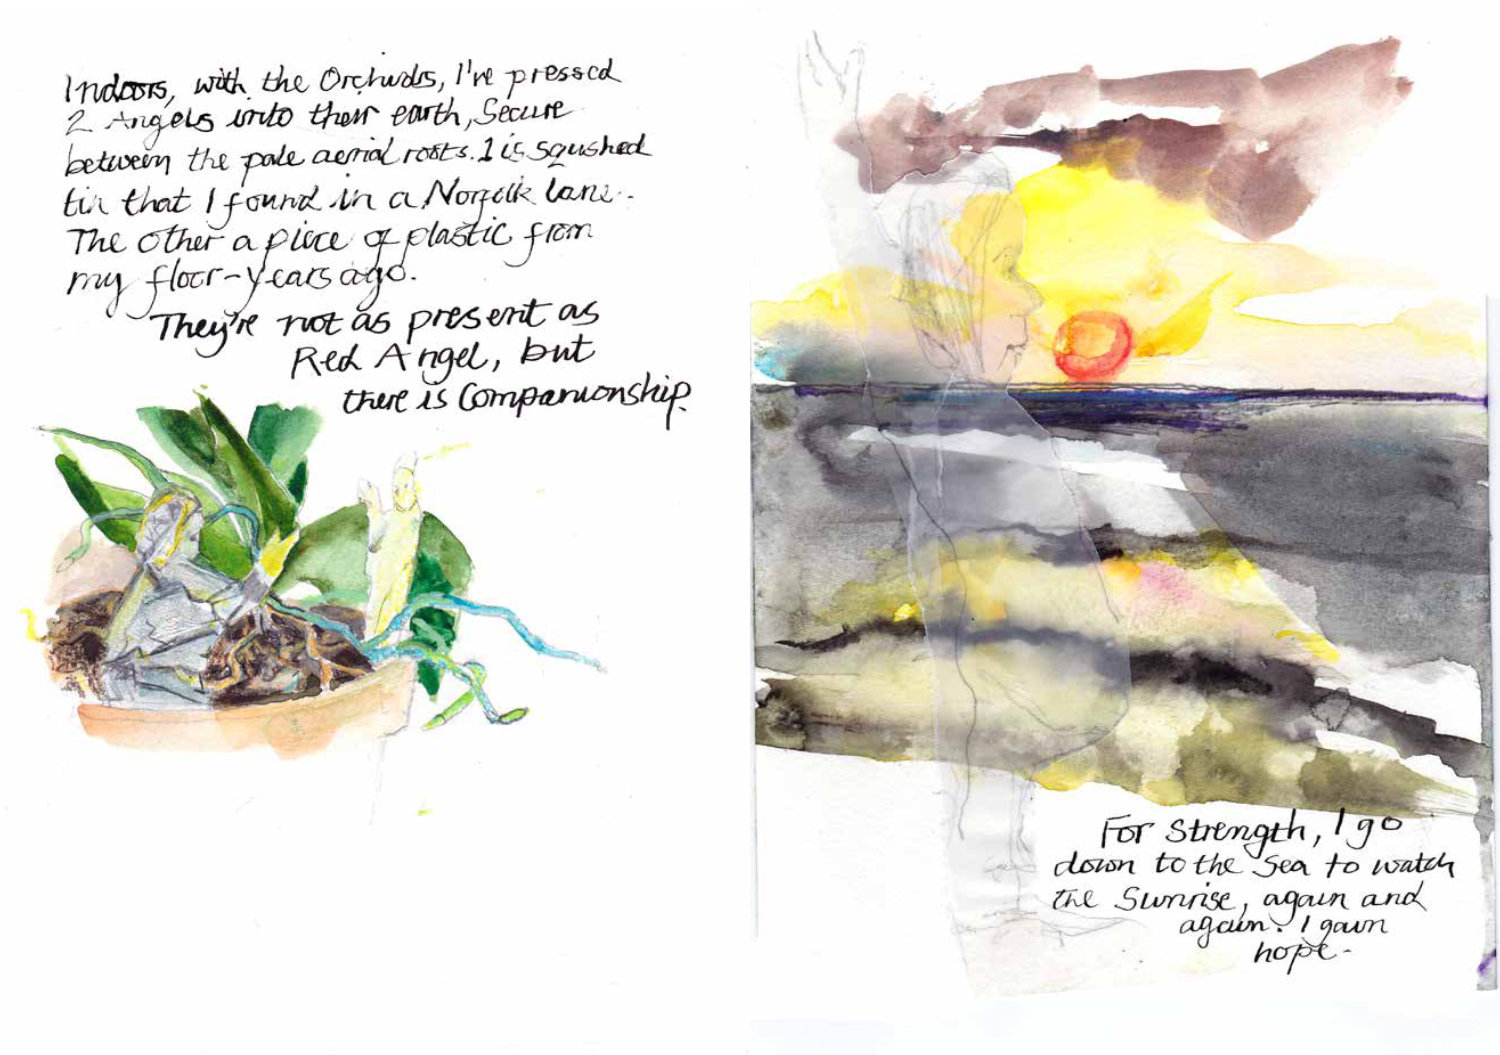 Indoors, with the Orchids, I've pressed
2 Angels into their earth, Secure
between the pale aerial roots. 1 is squashed
tin that I found in a Norfolk lane.
The other a piece of plastic from
my floor - years ago.
They're not as present as
Red Angel, but
there is Companionship.
For Strength, I go
down to the Sea to watch
the Sunrise, again and
again. I gain
hope-